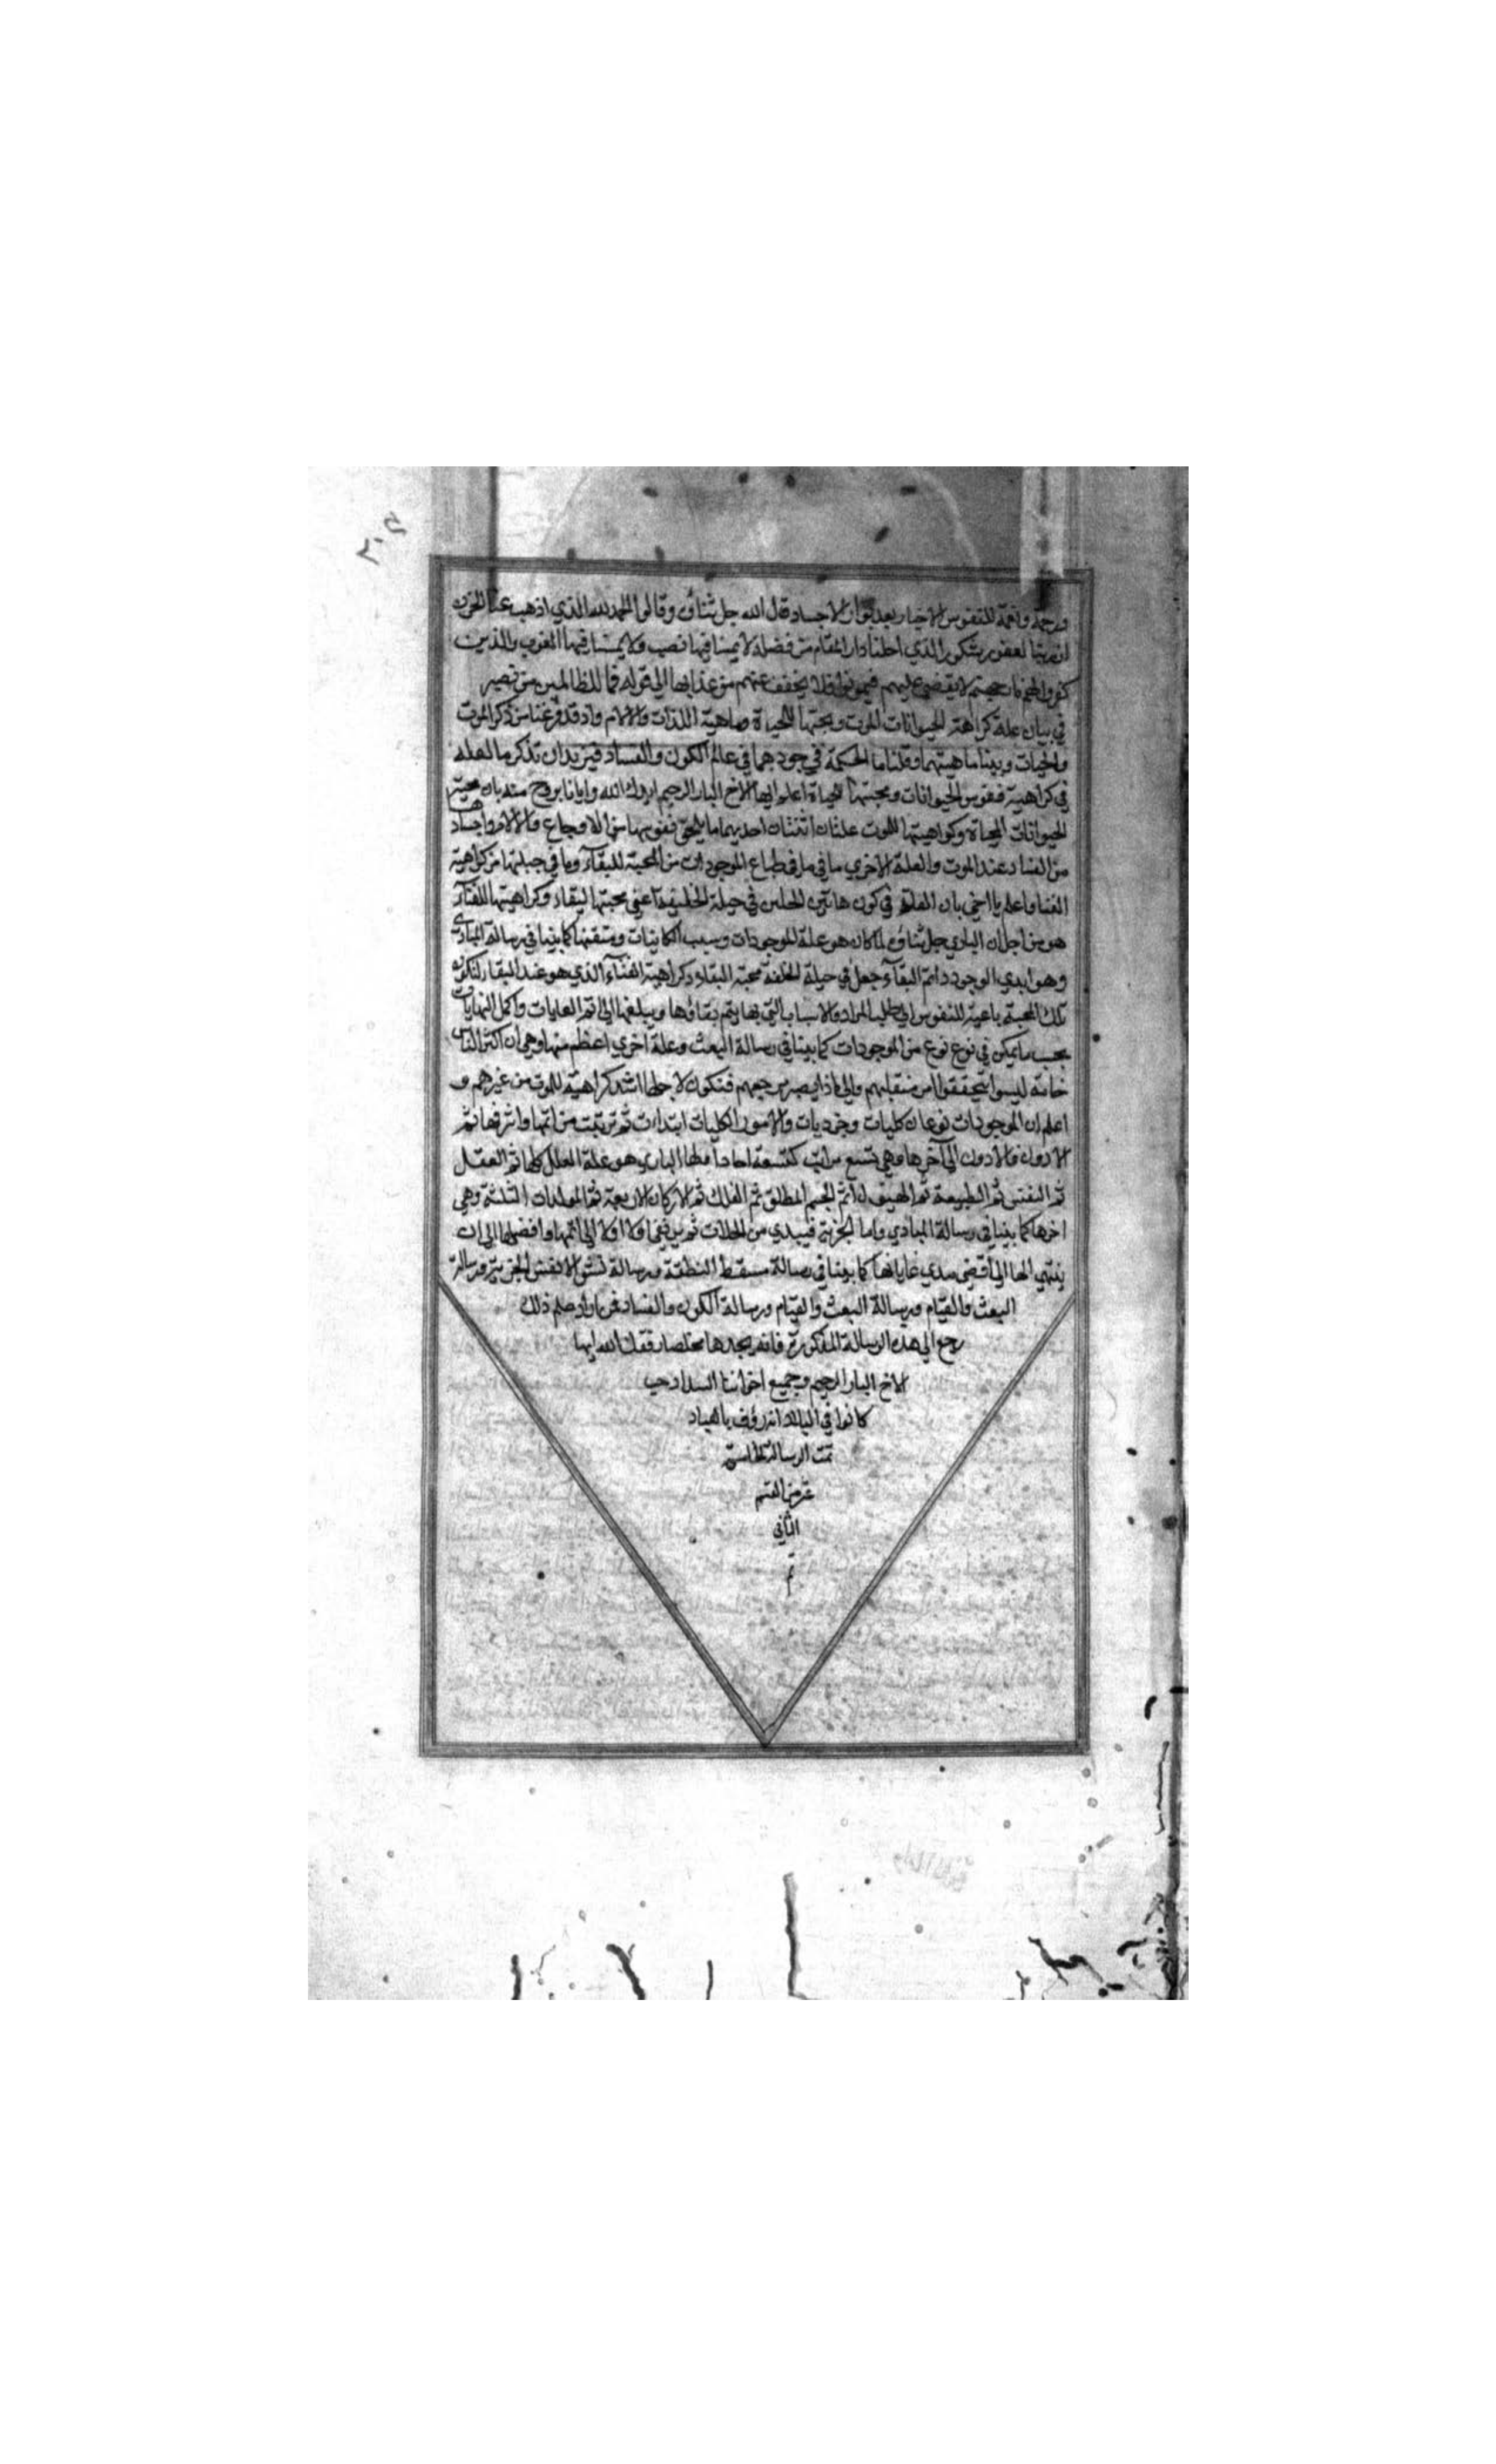 ورحمة ونعمة للنفوس الاخيار بعد بوار الاجساد قال الله جل ثناؤه وقالوا الحمد لله الذي اذهب عنا الحزن
ان ربنا لغفور شكور الذي احلنا دار المقام من فضله لا يمسنا فيها نصب ولا يمسنا فيها لغوب والذين
كفروا لهم نار جهنم لا يقضي عليهم فيموتوا فلا يخفف عنهم من عذابها الي قوله فما للظالمين من نصير
في بيان علة كراهة الحيوانات الموت ومحبتها للحياة وماهية اللذات والالام واذ قد فرغنا من ذكر الموت
والحيات وبينا ماهيتهما وقلنا ما الحكمة في وجودهما في عالم الكون والفساد فنريد ان نذكر ما العلة
في كراهية نفوس الحيوانات ومحبتها للحياة اعلم ايها الاخ البار الرحيم ايدك الله وايانا بروح منه بان محبة
الحيوانات للحياة وكراهيتها للموت علتان اثنتان احديهما ما يلحق نفوسها من الاوجاع والالام واجسادها
من الفساد عند الموت والعلة الاخري ما في ما في طباع الموجودات من المحبة للبقاء وما في جبلتها من كراهية
الفنا واعلم يا اخي بان العلة في كون هاتين في جبلة الخليقة اعني محبتها البقاء وكراهيتها للفناء
هو من اجل ان الباري جل ثناؤه لما كان هو علة الموجودات وسبب الكاينات ومتقنها كما بينا في رسالة المبادي
وهو ابدي الوجود دائم البقاء جعل في جبلة الخلقة محبة البقاء وكراهية الفناء الذي هو عند البقاء لتكون
تلك المحبة باعية للنفوس الي طلب المراد والاسباب التي بها يتم بقاؤها ويبلغها الي اتم الغايات واكمل النهايات
بحسب ما يمكن في نوع نوع من الموجودات كما بينا في رسالة البعث وعلة اخري اعظم منها وهي ان اكثر الناس
خاصة ليسوا يتحققوا من منقلبهم والي ماذا يصير مرجعهم فتكون لاجلها اشد كراهية للموت من غيرهم و
اعلم ان الموجودات نوعان كليات وجزديات والامور الكليات ابتدات ثم ترتبت من اتمها واشرفها ثم
الادون والادون الي آخرها وهي تسع مراتب كتسعة احاد اولها الباري هو علة العلل كلها ثم العقل
ثم النفس ثم الطبيعة ثم الهيولي ثم الجسم المطلق ثم الفلك ثم الاركان الاربعة ثم المولدات الثلثة وهي
اخرها كما بينا في رسالة المبادي واما الجزئية فيبدي من ثم يرتقي اولا اولا الي اتمها وافضلها الي ان
ينتهي الها الي اقصي مدي غاياتها كما بينا في رسالة مسقط النطفة ورسالة نشق الانفس الجزيية ورسالة
البعث والقيام ورسالة البعث والقيام ورسالة الكون والفساد فمن اراد علم ذلك
رجع الي هذه الرسالة المذكورة فانه يجدها وفقك الله ايها
الاخ البار الرحيم وجميع اخواننا السداد حيب
كانوا في البلاد انه رؤف بالعباد
تمت الرسالة الخامسة
عشر من القسم
الثاني
تم